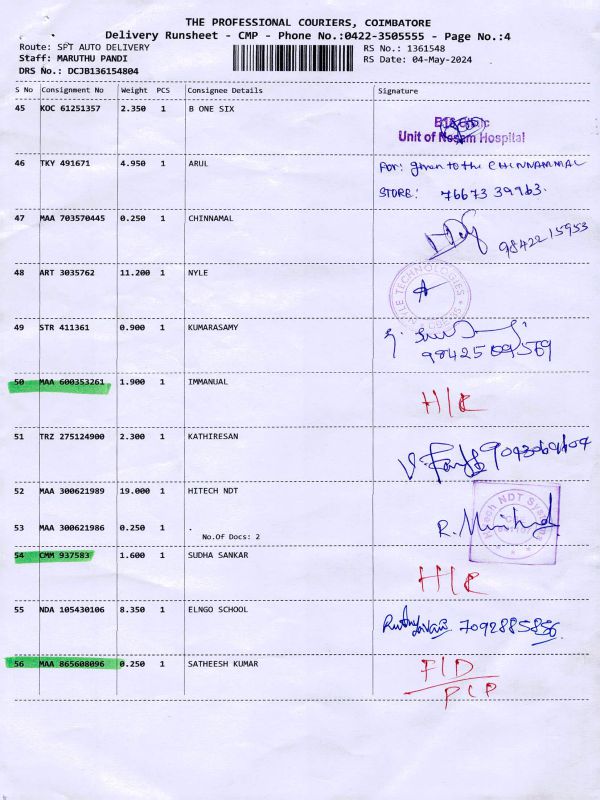 THE PROFESSIONAL COURIERS, COIMBATORE
Delivery Runsheet - CMP - Phone No.:0422-3505555 - Page No.:4
Route: SPT AUTO DELIVERY RS No.: 1361548
Staff: MARUTHU PANDI RS Date: 04-May-2024
DRS No.: DCJB136154804
S No Consignment No Weight PCS Consignee Details Signature
45 KOC 61251357 2.350 1 B ONE SIX
Unit of Hospital
46 TKY 491671 4.950 1 ARUL For: given to the CHINNAMMAL
STORE: 76673 39963.
47 MAA 703570445 0.250 1 CHINNAMAL
98422 15953
48 ART 3035762 11.200 1 NYLE
TECHNOLOGIES
49 STR 411361 0.900 1 KUMARASAMY
50 MAA 600353261 1.900 1 IMMANUAL H/C
51 TRZ 275124900 2.300 1 KATHIRESAN
52 MAA 300621989 19.000 1 HITECH NDT
Hitech NDT Systems
53 MAA 300621986 0.250 1 .
No.Of Docs: 2
54 CMM 937583 1.600 1 SUDHA SANKAR H/C
55 NDA 105430106 8.350 1 ELNGO SCHOOL 7092885856
56 MAA 865608096 0.250 1 SATHEESH KUMAR F/D
P/P